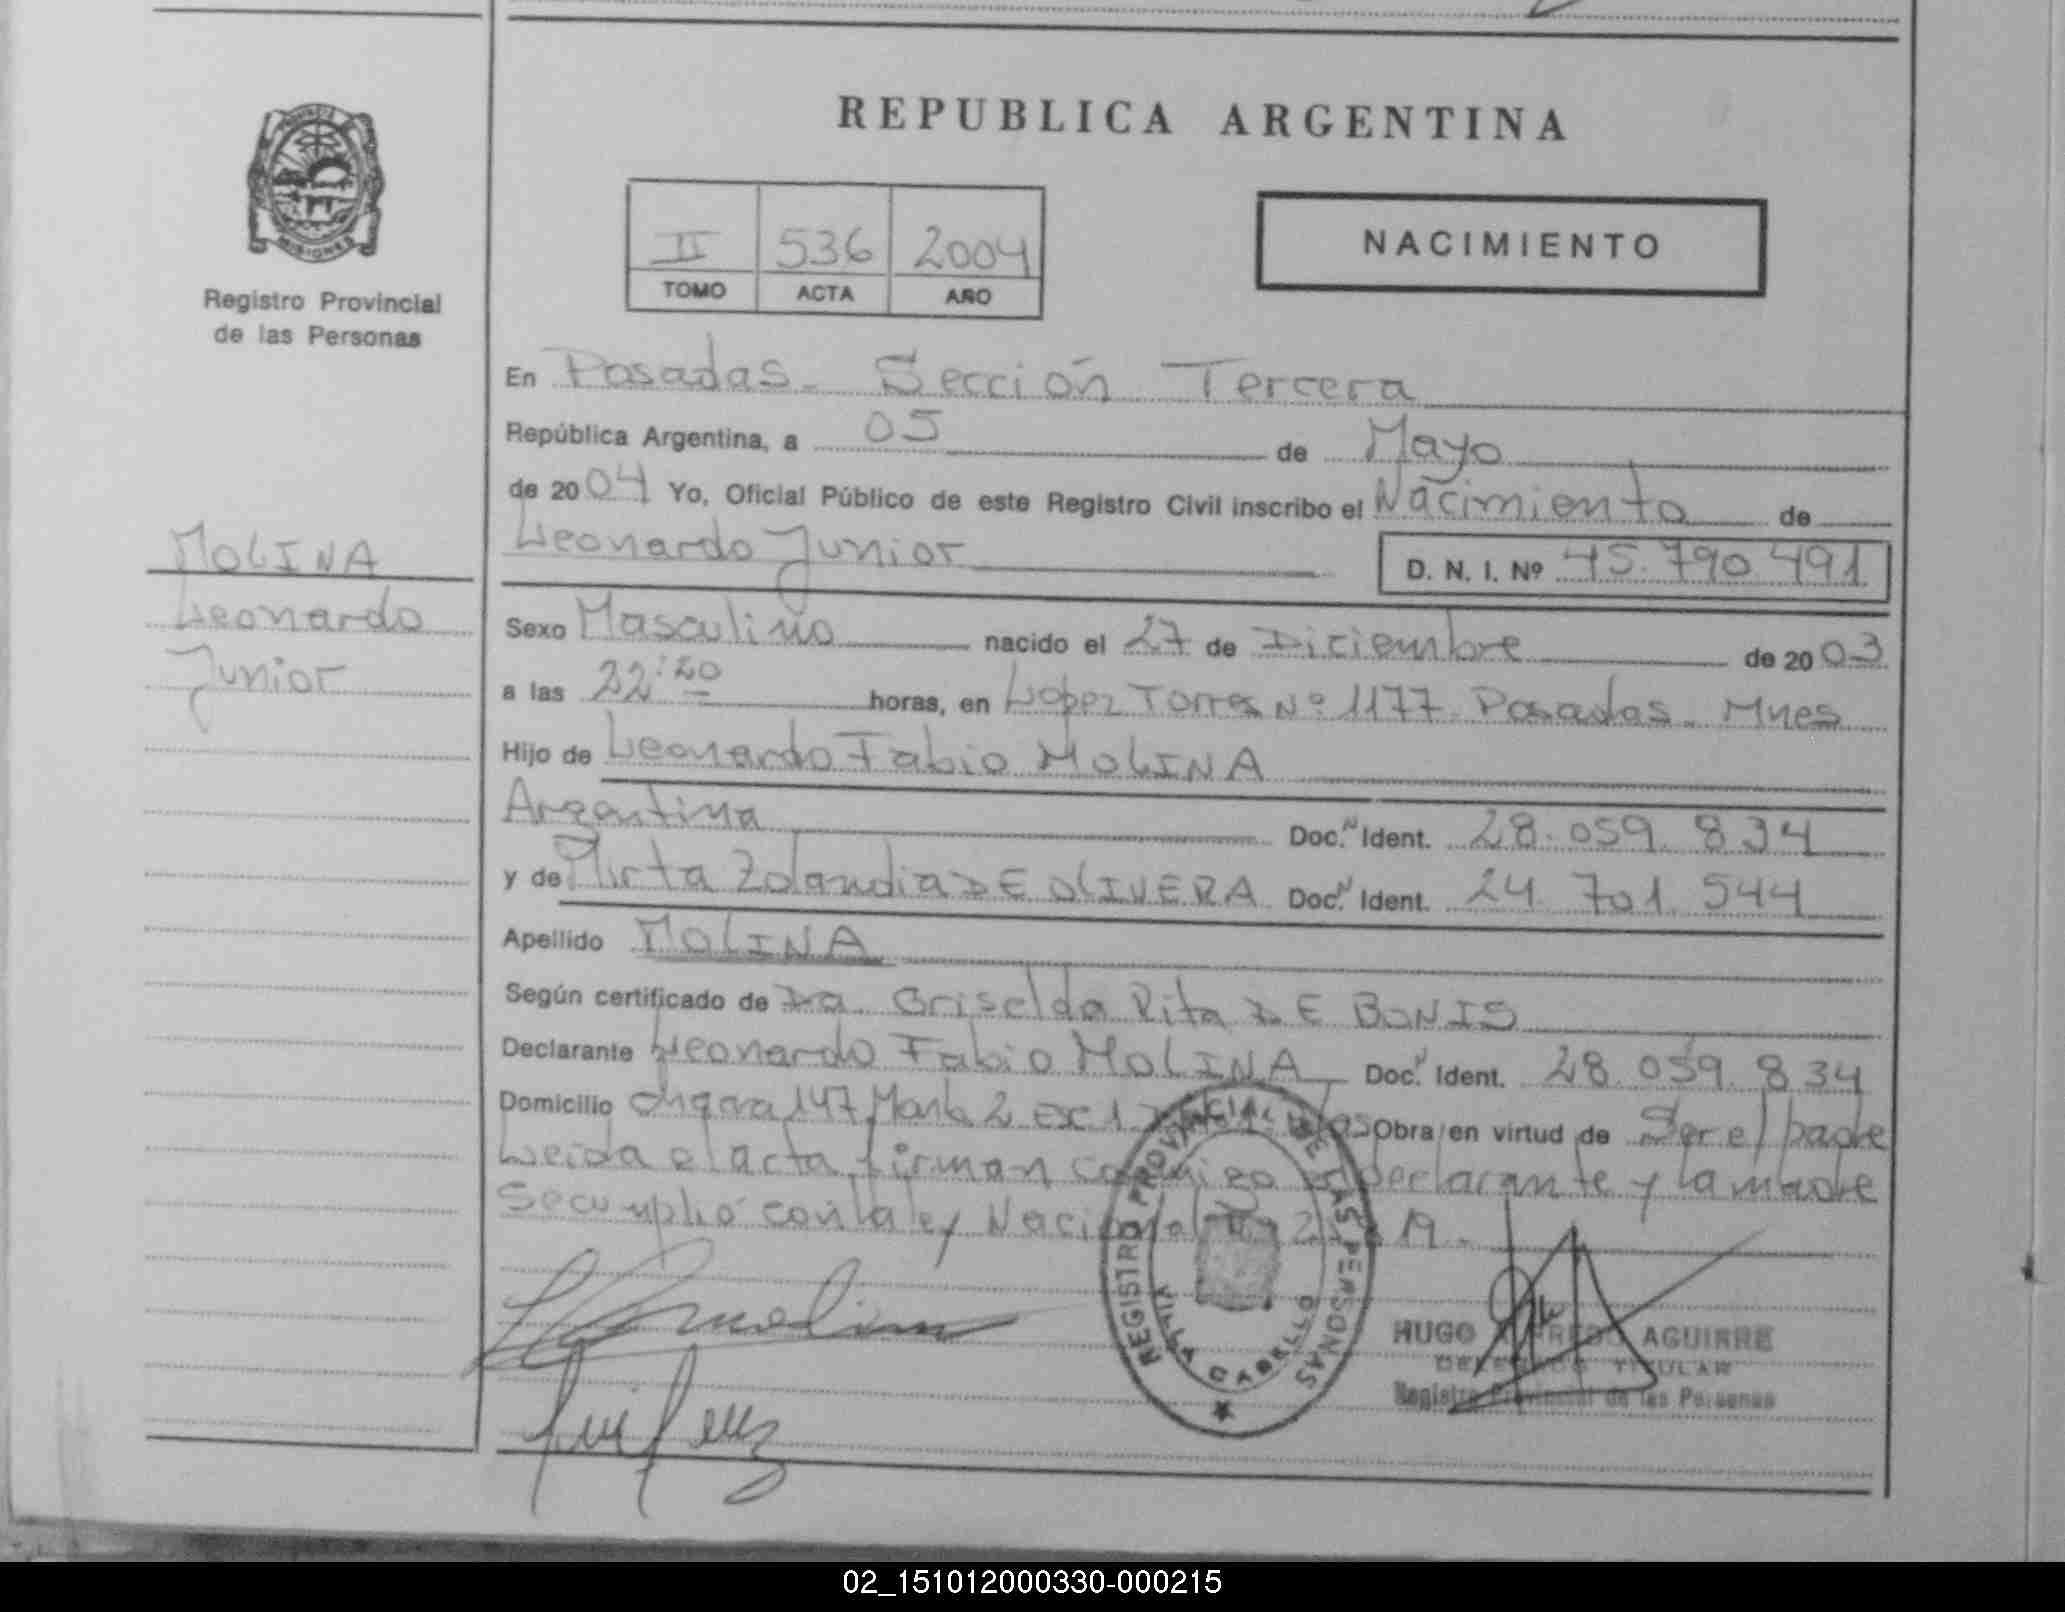 REPUBLICA ARGENTINA
MISIONES
Registro Provincial
de las Personas
II 536 2004
TOMO ACTA AÑO
NACIMIENTO
MOLINA
Leonardo
Junior
En Posadas - Sección Tercera
República Argentina, a 05 de Mayo
de 2004 Yo, Oficial Público de este Registro Civil inscribo el Nacimiento de
Leonardo Junior D. N. I. Nº 45.790.491
Sexo Masculino nacido el 27 de Diciembre de 2003
a las 22:20 horas, en López Torres Nº 1177 - Posadas - Mnes
Hijo de Leonardo Fabio MOLINA
Argentina Doc. N Ident. 28.059.834
y de Mirta Zolandia DE OLIVERA Doc. N Ident. 24.701.544
Apellido MOLINA
Según certificado de Dra. Griselda Rita DE BONIS
Declarante Leonardo Fabio MOLINA Doc. N Ident. 28.059.834
Domicilio chacra 147 Manz 2 Obra en virtud de Ser el padre
Leida el acta, firman conmigo el Declarante y la madre
Se cumplió con la ley Nacional
REGISTRO PROVINCIAL DE LAS PERSONAS
VILLA CABELLO
HUGO ALFREDO AGUIRRE
DELEGADO TITULAR
Registro Provincial de las Personas
02_151012000330-000215